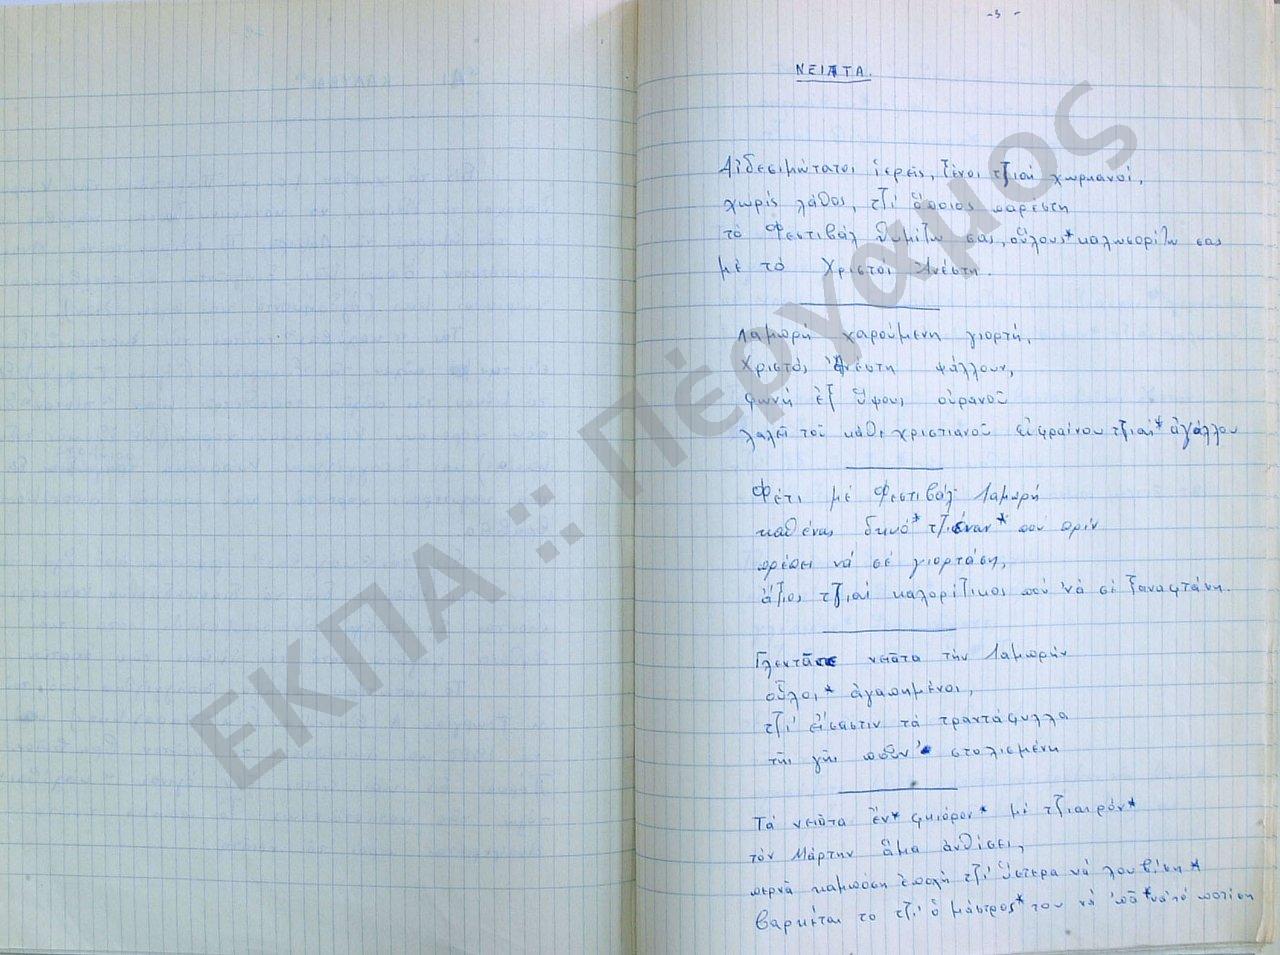 -3-
ΝΕΙΑΤΑ.
Αἰδεσιμώτατοι ἱερεῖς, ξένοι τζιαί χωρκανοί,
χωρίς λάθος, τζι' ὅποιος παρέστη
τό Φεστιβάλ θυμίζω σας, οὕλους* καλωσορίζω σας
μέ τό Χριστός Ἀνέστη.
Λαμπρή χαρούμενη γιορτή,
Χριστός Ἀνέστη ψάλλουν,
φωνή ἐξ ὕψους οὐρανοῦ
λαλεῖ τοῦ κάθε χριστιανοῦ εὐφραίνου τζιαί* ἀγάλλου
Φέτι μέ Φεστιβάλ Λαμπρή
καθένας δκυό* τζιέναν* πού πρίν
πρέπει νά σέ γιορτάση,
ἄξιος τζιαί καλορίζικος πού νά σέ ξαναφτάση.
Γλεντᾶτε νειᾶτα τήν Λαμπρήν
οὗλοι* ἀγαπημένοι,
τζι' εἴσαστιν τά τραντάφυλλα
τῆς γῆς ποὖν'* στολισμένη
Τά νειᾶτα ἔν* φκιόρον* μέ τζιαιρόν*
τόν Μάρτην ἅμα ἀνθίσει,
περνᾶ καμπόση ἐποχή τζι' ὕστερα νά λουβίση*
βαρκέται το τζι' ὁ μάστρος* του νά πᾶ* νά τό ποτίση
ΕΚΠΑ :: Πέργαμος